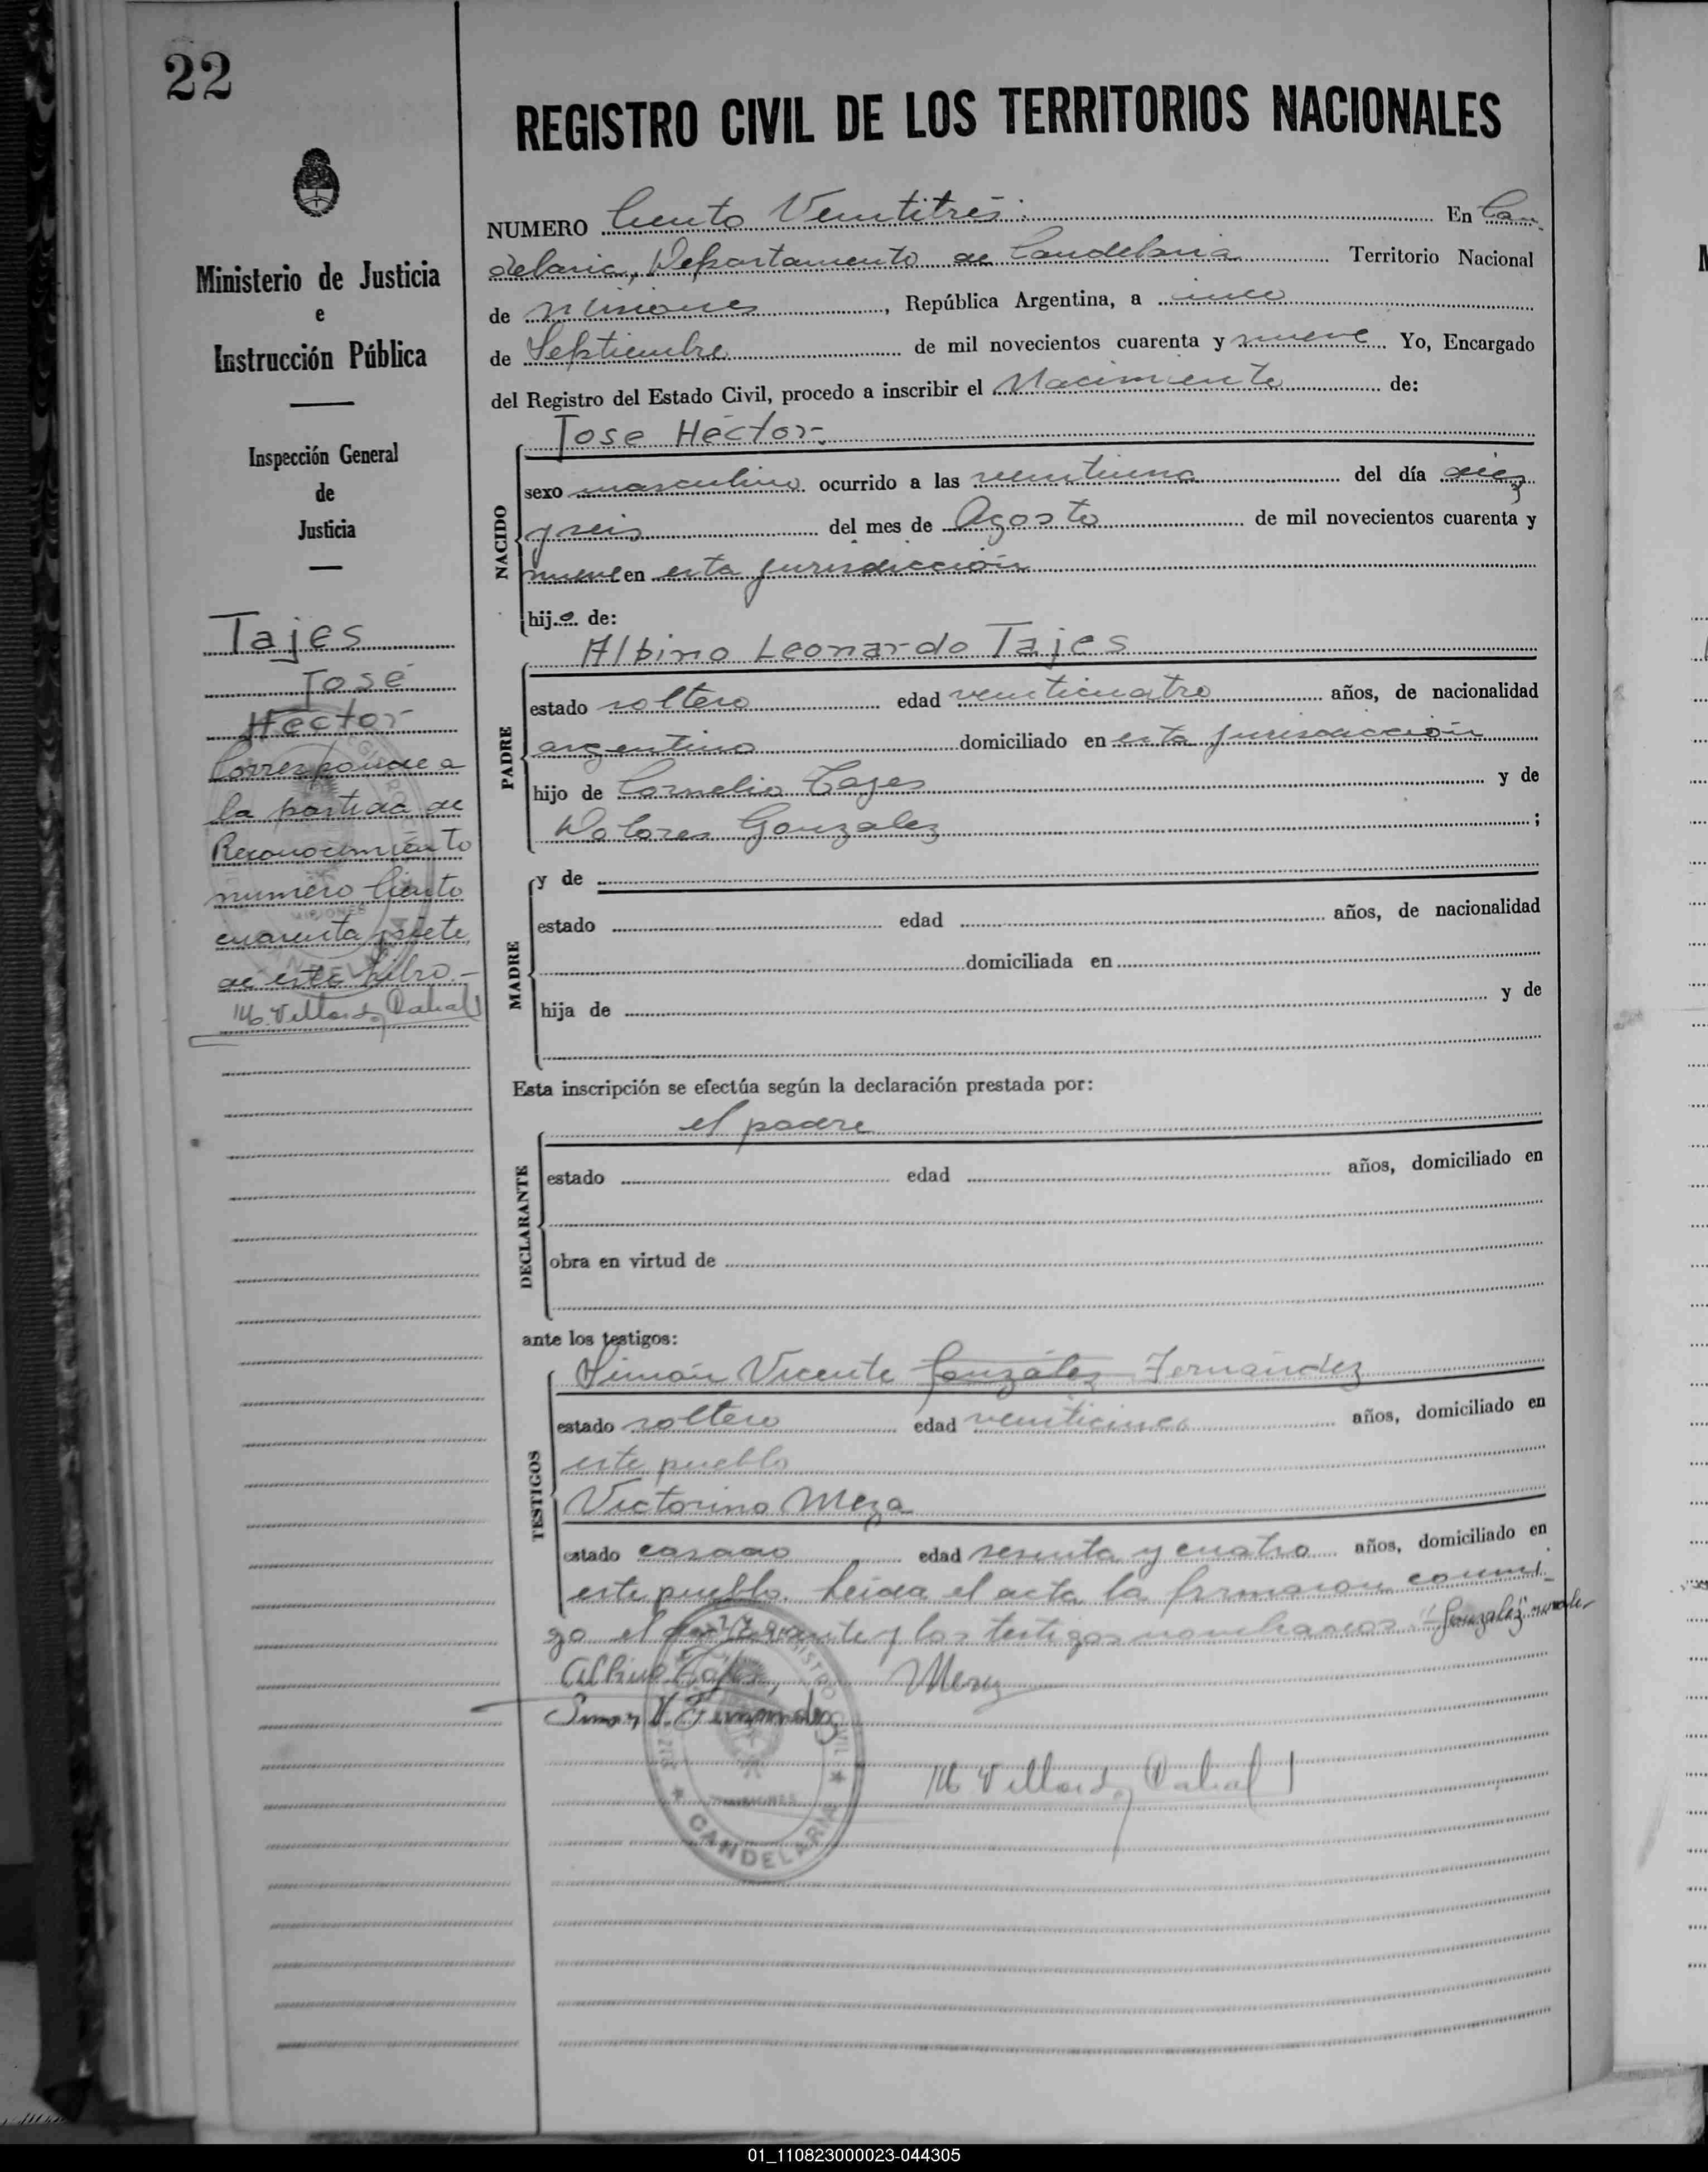 22
REGISTRO CIVIL DE LOS TERRITORIOS NACIONALES
Ministerio de Justicia
e
Instrucción Pública
Inspección General
de
Justicia
Tajes
José
Hector
Corresponde a
la partida de
Reconocimiento
numero Ciento
cuarenta y siete
de este Libro.-
NUMERO Ciento Veintitrés. En Can-
delaria, Departamento de Candelaria Territorio Nacional
de Misiones, República Argentina, a cinco
de Septiembre de mil novecientos cuarenta y nueve Yo, Encargado
del Registro del Estado Civil, procedo a inscribir el Nacimiento de:
NACIDO
Jose Héctor.
sexo masculino ocurrido a las veintiuna del día diez
y seis del mes de Agosto de mil novecientos cuarenta y
nueve en esta jurisdicción
hijo de:
PADRE
Albino Leonardo Tajes
estado soltero edad veinticuatro años, de nacionalidad
argentino domiciliado en esta jurisdicción
hijo de Cornelio Tajes y de
Dolores Gonzalez ;
MADRE
y de
estado edad años, de nacionalidad
domiciliada en
hija de y de
Esta inscripción se efectúa según la declaración prestada por:
DECLARANTE
el padre
estado edad años, domiciliado en
obra en virtud de
ante los testigos:
TESTIGOS
Simón Vicente González Fernández
estado soltero edad veinticinco años, domiciliado en
este pueblo
Victorino Meza
estado casado edad sesenta y cuatro años, domiciliado en
este pueblo. Leida el acta la firmaron conmi-
go el declarante y los testigos nombrados. "Gonzalez" no vale-
Albino Tajes, Meza
Simon V. Fernandez
REGISTRO CIVIL
MISIONES
CANDELARIA
01_110823000023-044305